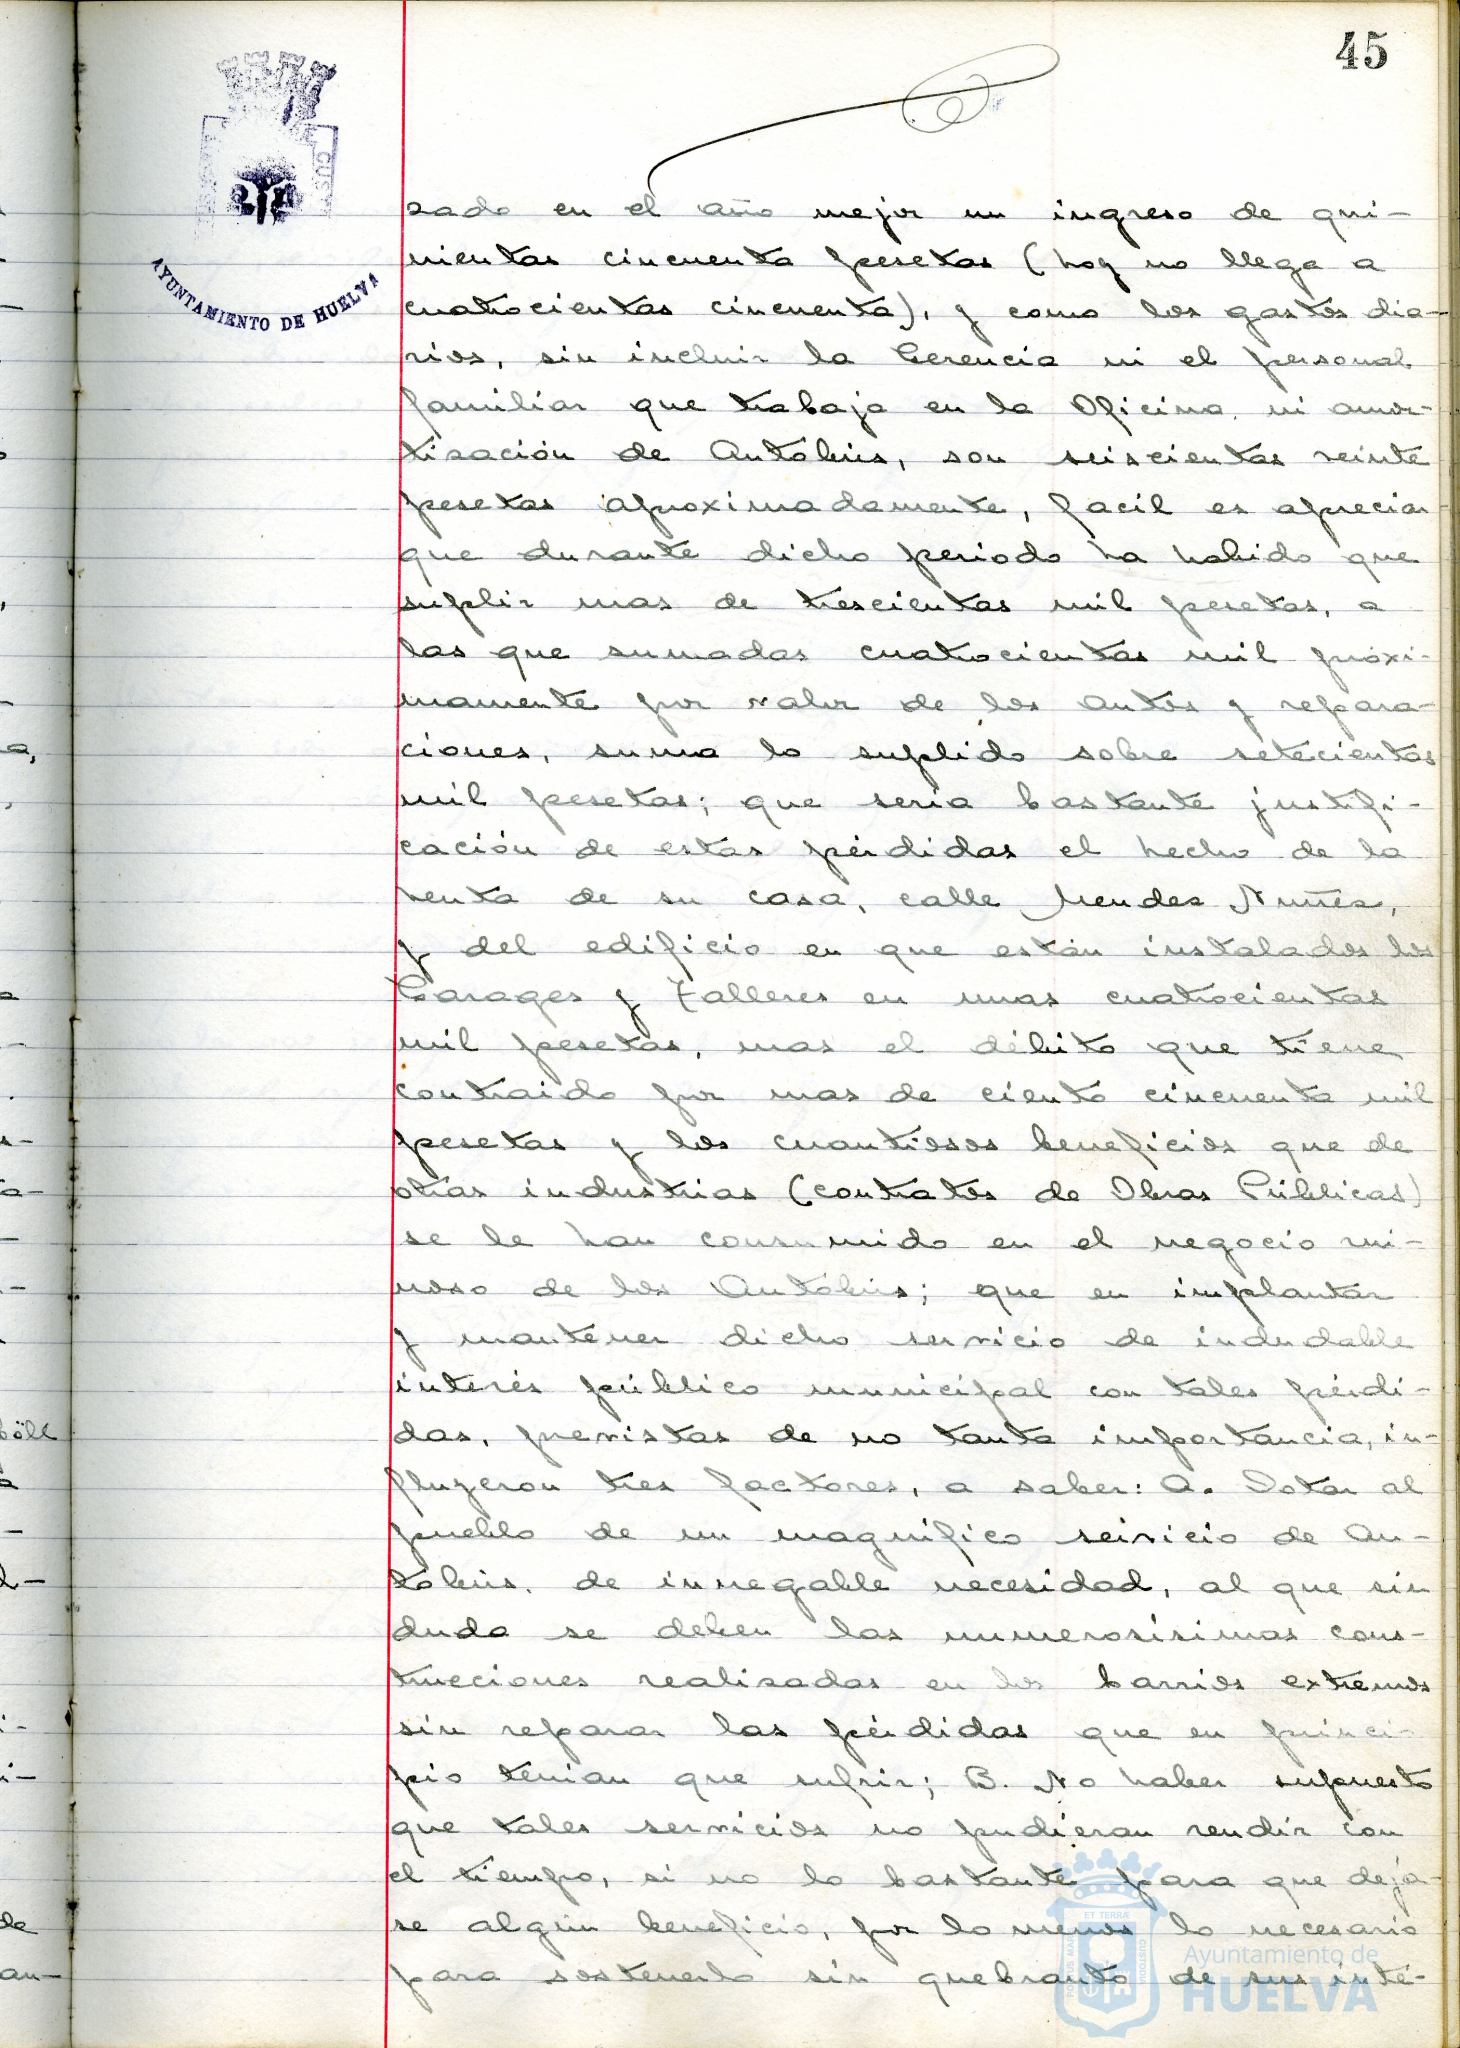 45
AYUNTAMIENTO DE HUELVA
zado en el año mejor un ingreso de qui-
nientas cincuenta pesetas (hoy no llega a
cuatrocientas cincuenta), y como los gastos dia-
rios, sin incluir la Gerencia ni el personal
familiar que trabaja en la Oficina, ni amor-
tización de Autobús, son seiscientas veinte
pesetas aproximadamente, facil es apreciar
que durante dicho periodo ha habido que
suplir mas de trescientas mil pesetas, a
las que sumadas cuatrocientas mil próxi-
mamente por valor de los autos y repara-
ciones, suma lo suplido sobre setecientas
mil pesetas; que sería bastante justifi-
cación de estas pérdidas el hecho de la
venta de su casa, calle Mendez Nuñez,
y del edificio en que están instalados los
Garages y Talleres en unas cuatrocientas
mil pesetas, mas el débito que tiene
contraido por mas de ciento cincuenta mil
pesetas y los cuantiosos beneficios que de
otras industrias (contratos de Obras Públicas)
se le han consumido en el negocio rui-
noso de los Autobús; que en implantar
y mantener dicho servicio de indudable
interés público municipal con tales pérdi-
das, previstas de no tanta importancia, in-
fluyeron tres factores, a saber: A. Dotar al
pueblo de un magnífico servicio de Au-
tobús, de innegable necesidad, al que sin
duda se deben las numerosísimas cons-
trucciones realizadas en los barrios extremos
sin reparar las pérdidas que en princi-
pio tenian que sufrir; B. No haber supuesto
que tales servicios no pudieran rendir con
el tiempo, si no lo bastante para que deja-
se algún beneficio, por lo menos lo necesario
para sostenerlo sin quebranto de sus inte-
Ayuntamiento de
HUELVA